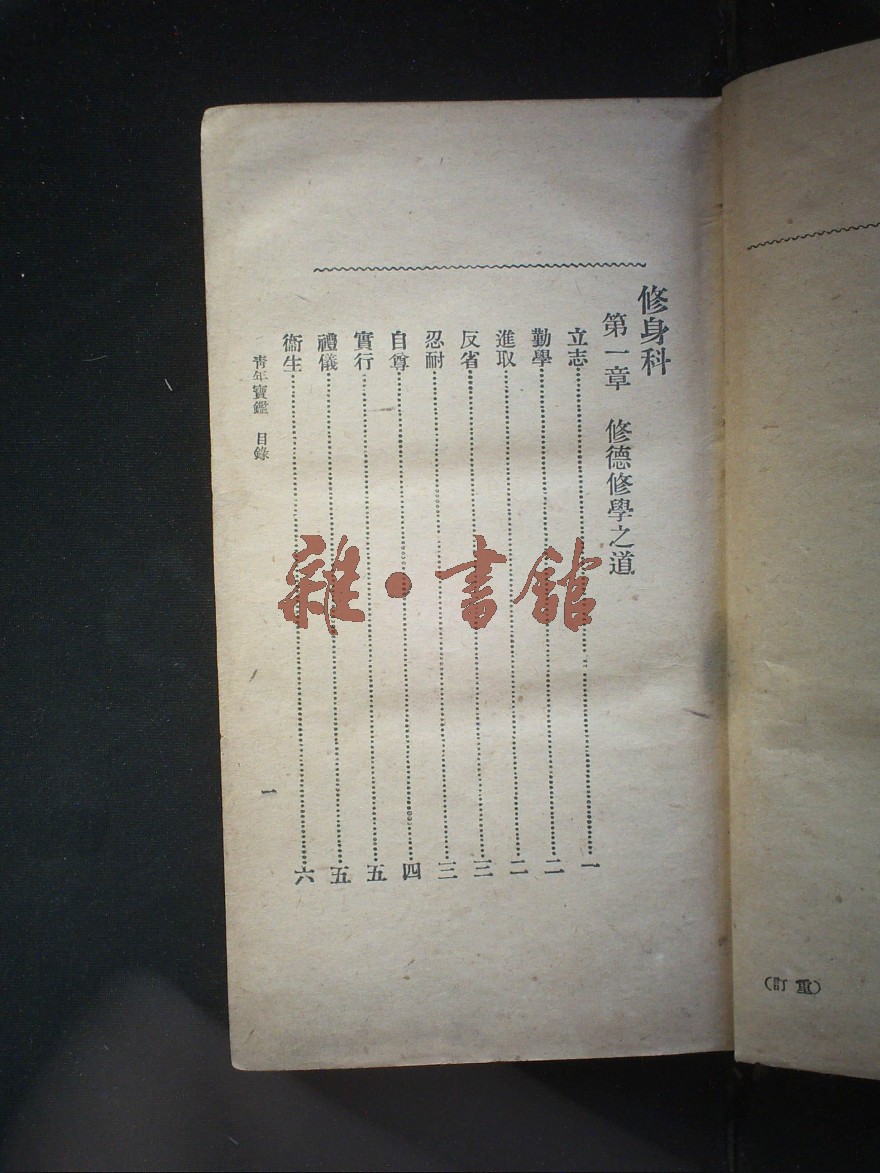 修身科
第一章　修德修學之道
立志……一
勤學……二
進取……二
反省……三
忍耐……三
自尊……四
實行……五
禮儀……五
衞生……六
青年寶鑑　目錄
一
（訂重）
雜·書館